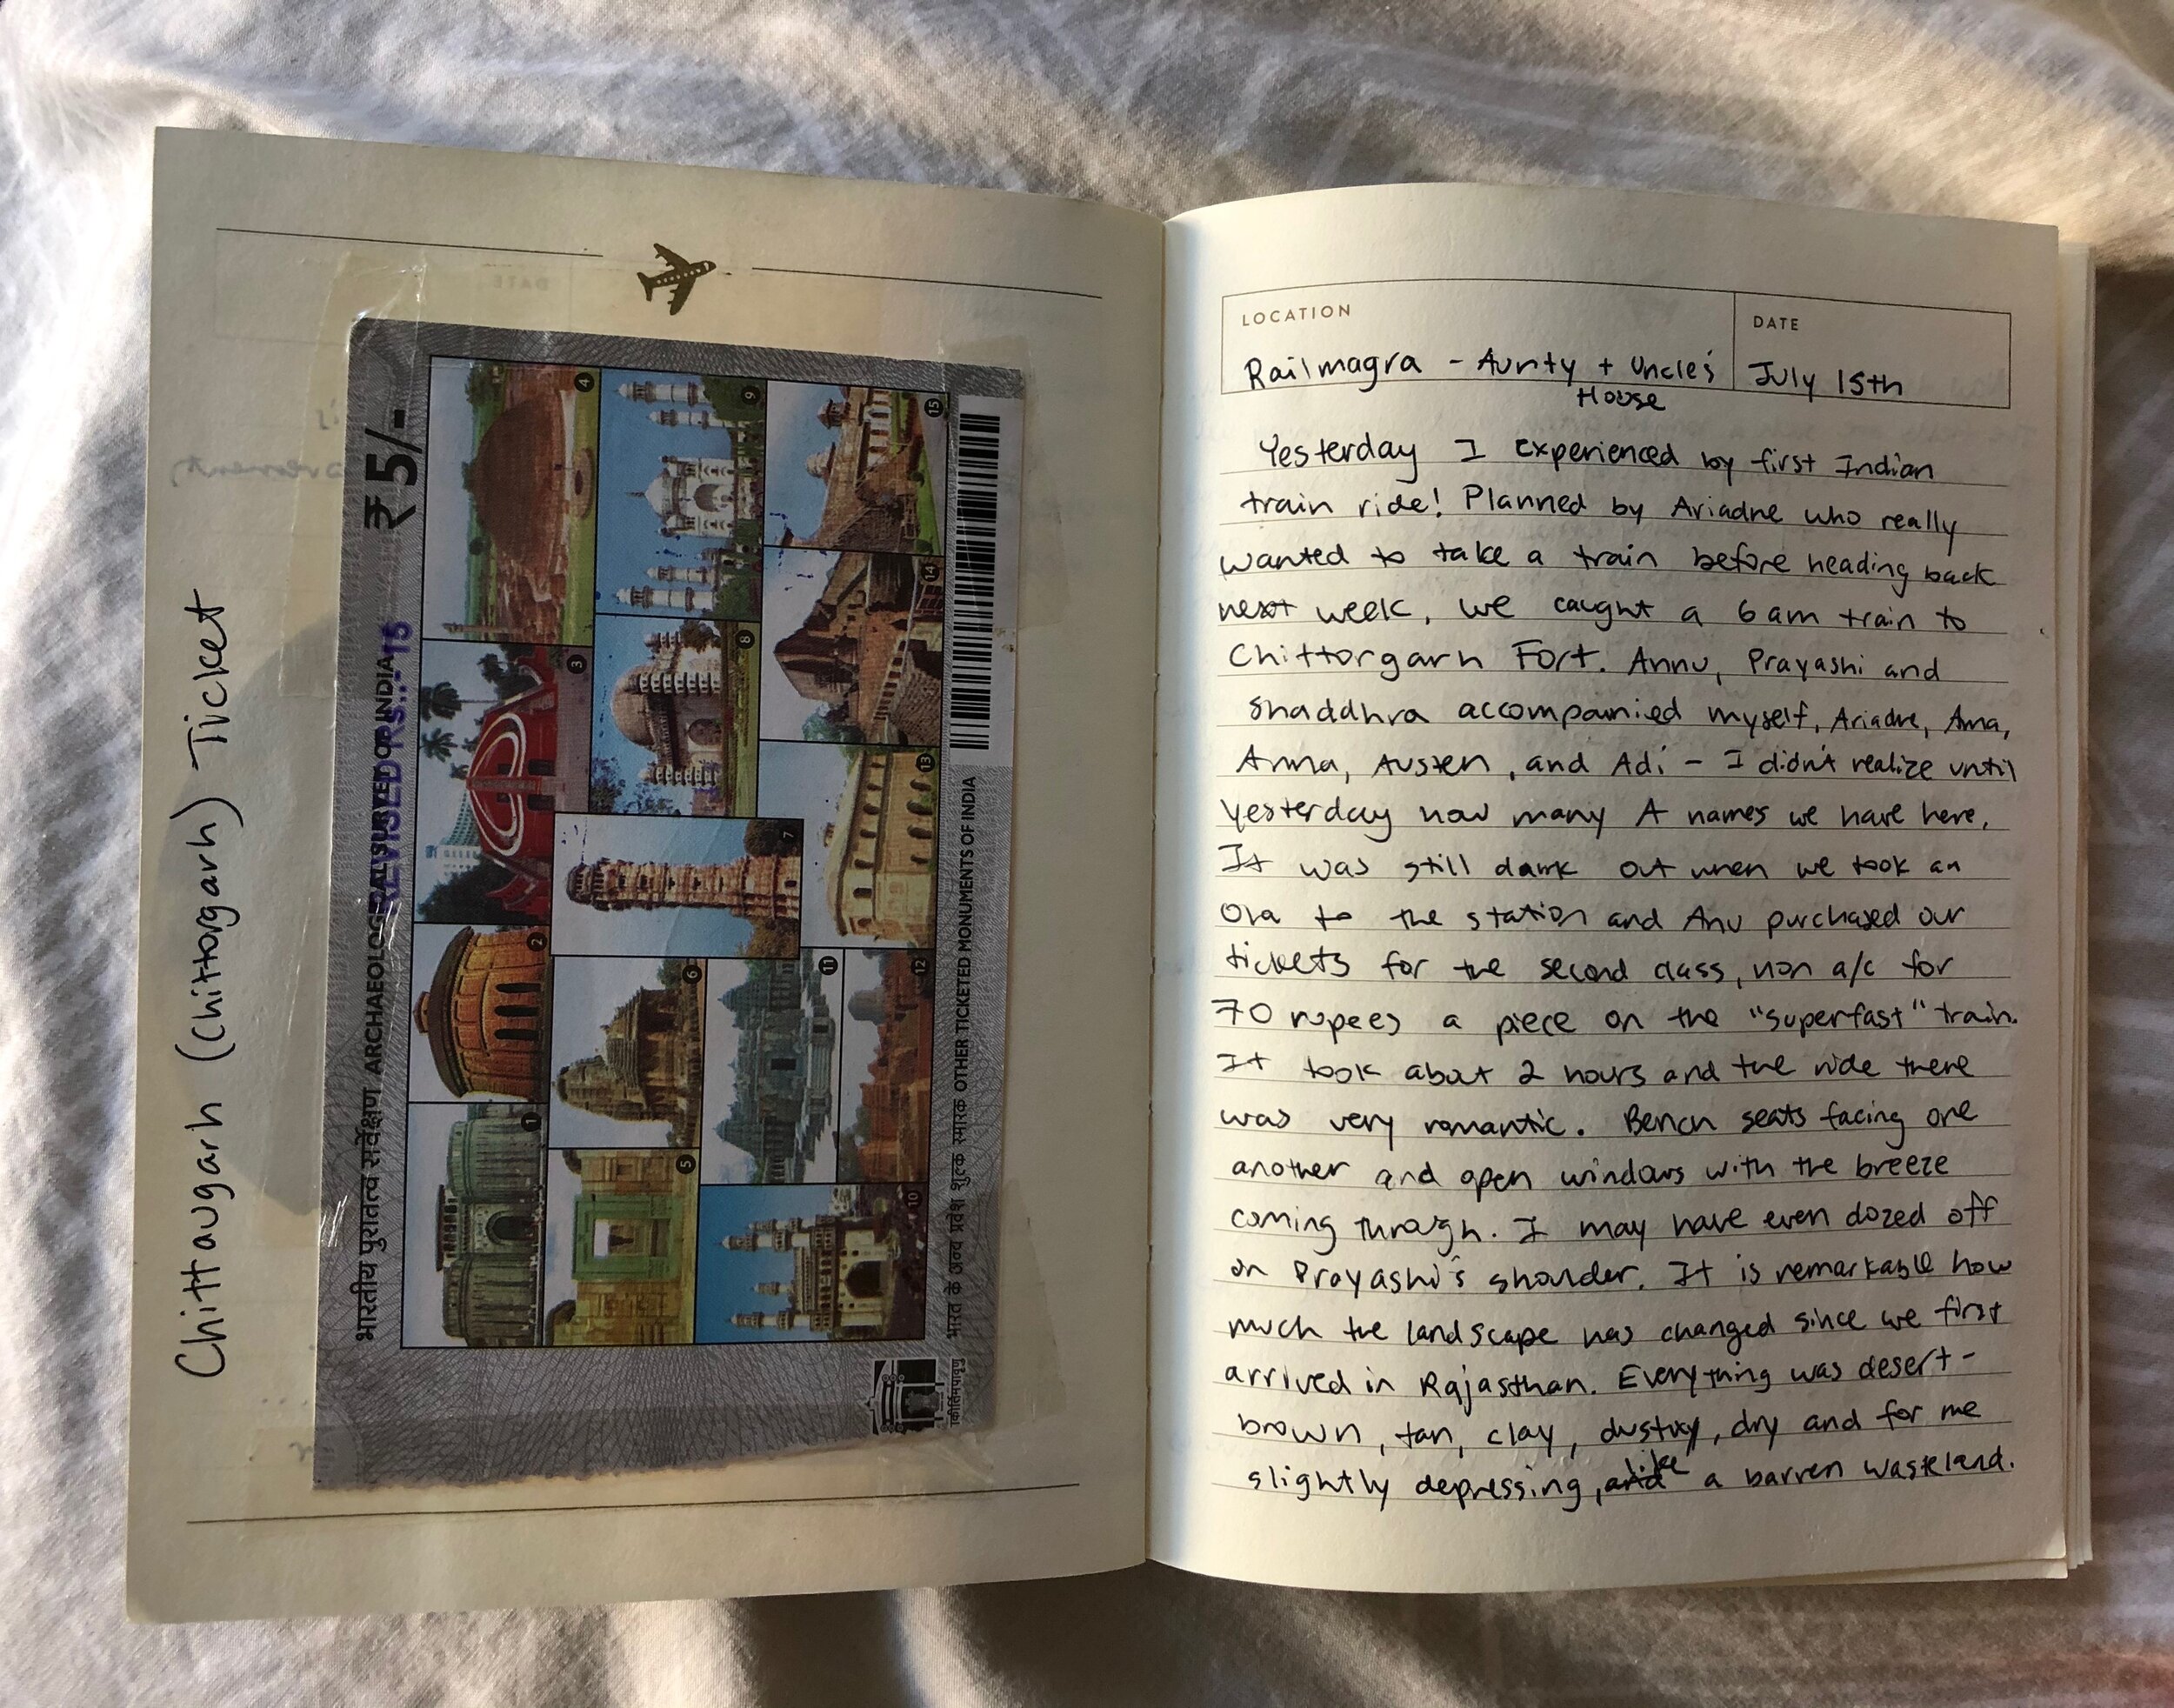 Chittaugarh (Chittorgarh) Ticket
भारतीय पुरातत्व सर्वेक्षण ARCHAEOLOGICAL SURVEY OF INDIA ₹5/-
REVISED RS.:-15
1
2
3
4
5
6
7
8
9
10
11
12
13
14
15
भारत के अन्य प्रवेश शुल्क स्मारक OTHER TICKETED MONUMENTS OF INDIA
LOCATION
DATE
Railmagra - Aunty + Uncle's
House
July 15th
Yesterday I experienced by first Indian
train ride! Planned by Ariadne who really
wanted to take a train before heading back
next week, we caught a 6am train to
Chittorgarh Fort. Annu, Prayashi and
Shaddhra accompanied myself, Ariadne, Ama,
Anna, Austen, and Adi - I didn't realize until
yesterday how many A names we have here.
It was still dark out when we took an
Ola to the station and Anu purchased our
tickets for the second class, non a/c for
70 rupees a piece on the "superfast" train.
It took about 2 hours and the ride there
was very romantic. Bench seats facing one
another and open windows with the breeze
coming through. I may have even dozed off
on Prayashi's shoulder. It is remarkable how
much the landscape has changed since we first
arrived in Rajasthan. Everything was desert-
brown, tan, clay, dusty, dry and for me
slightly depressing, like a barren wasteland.